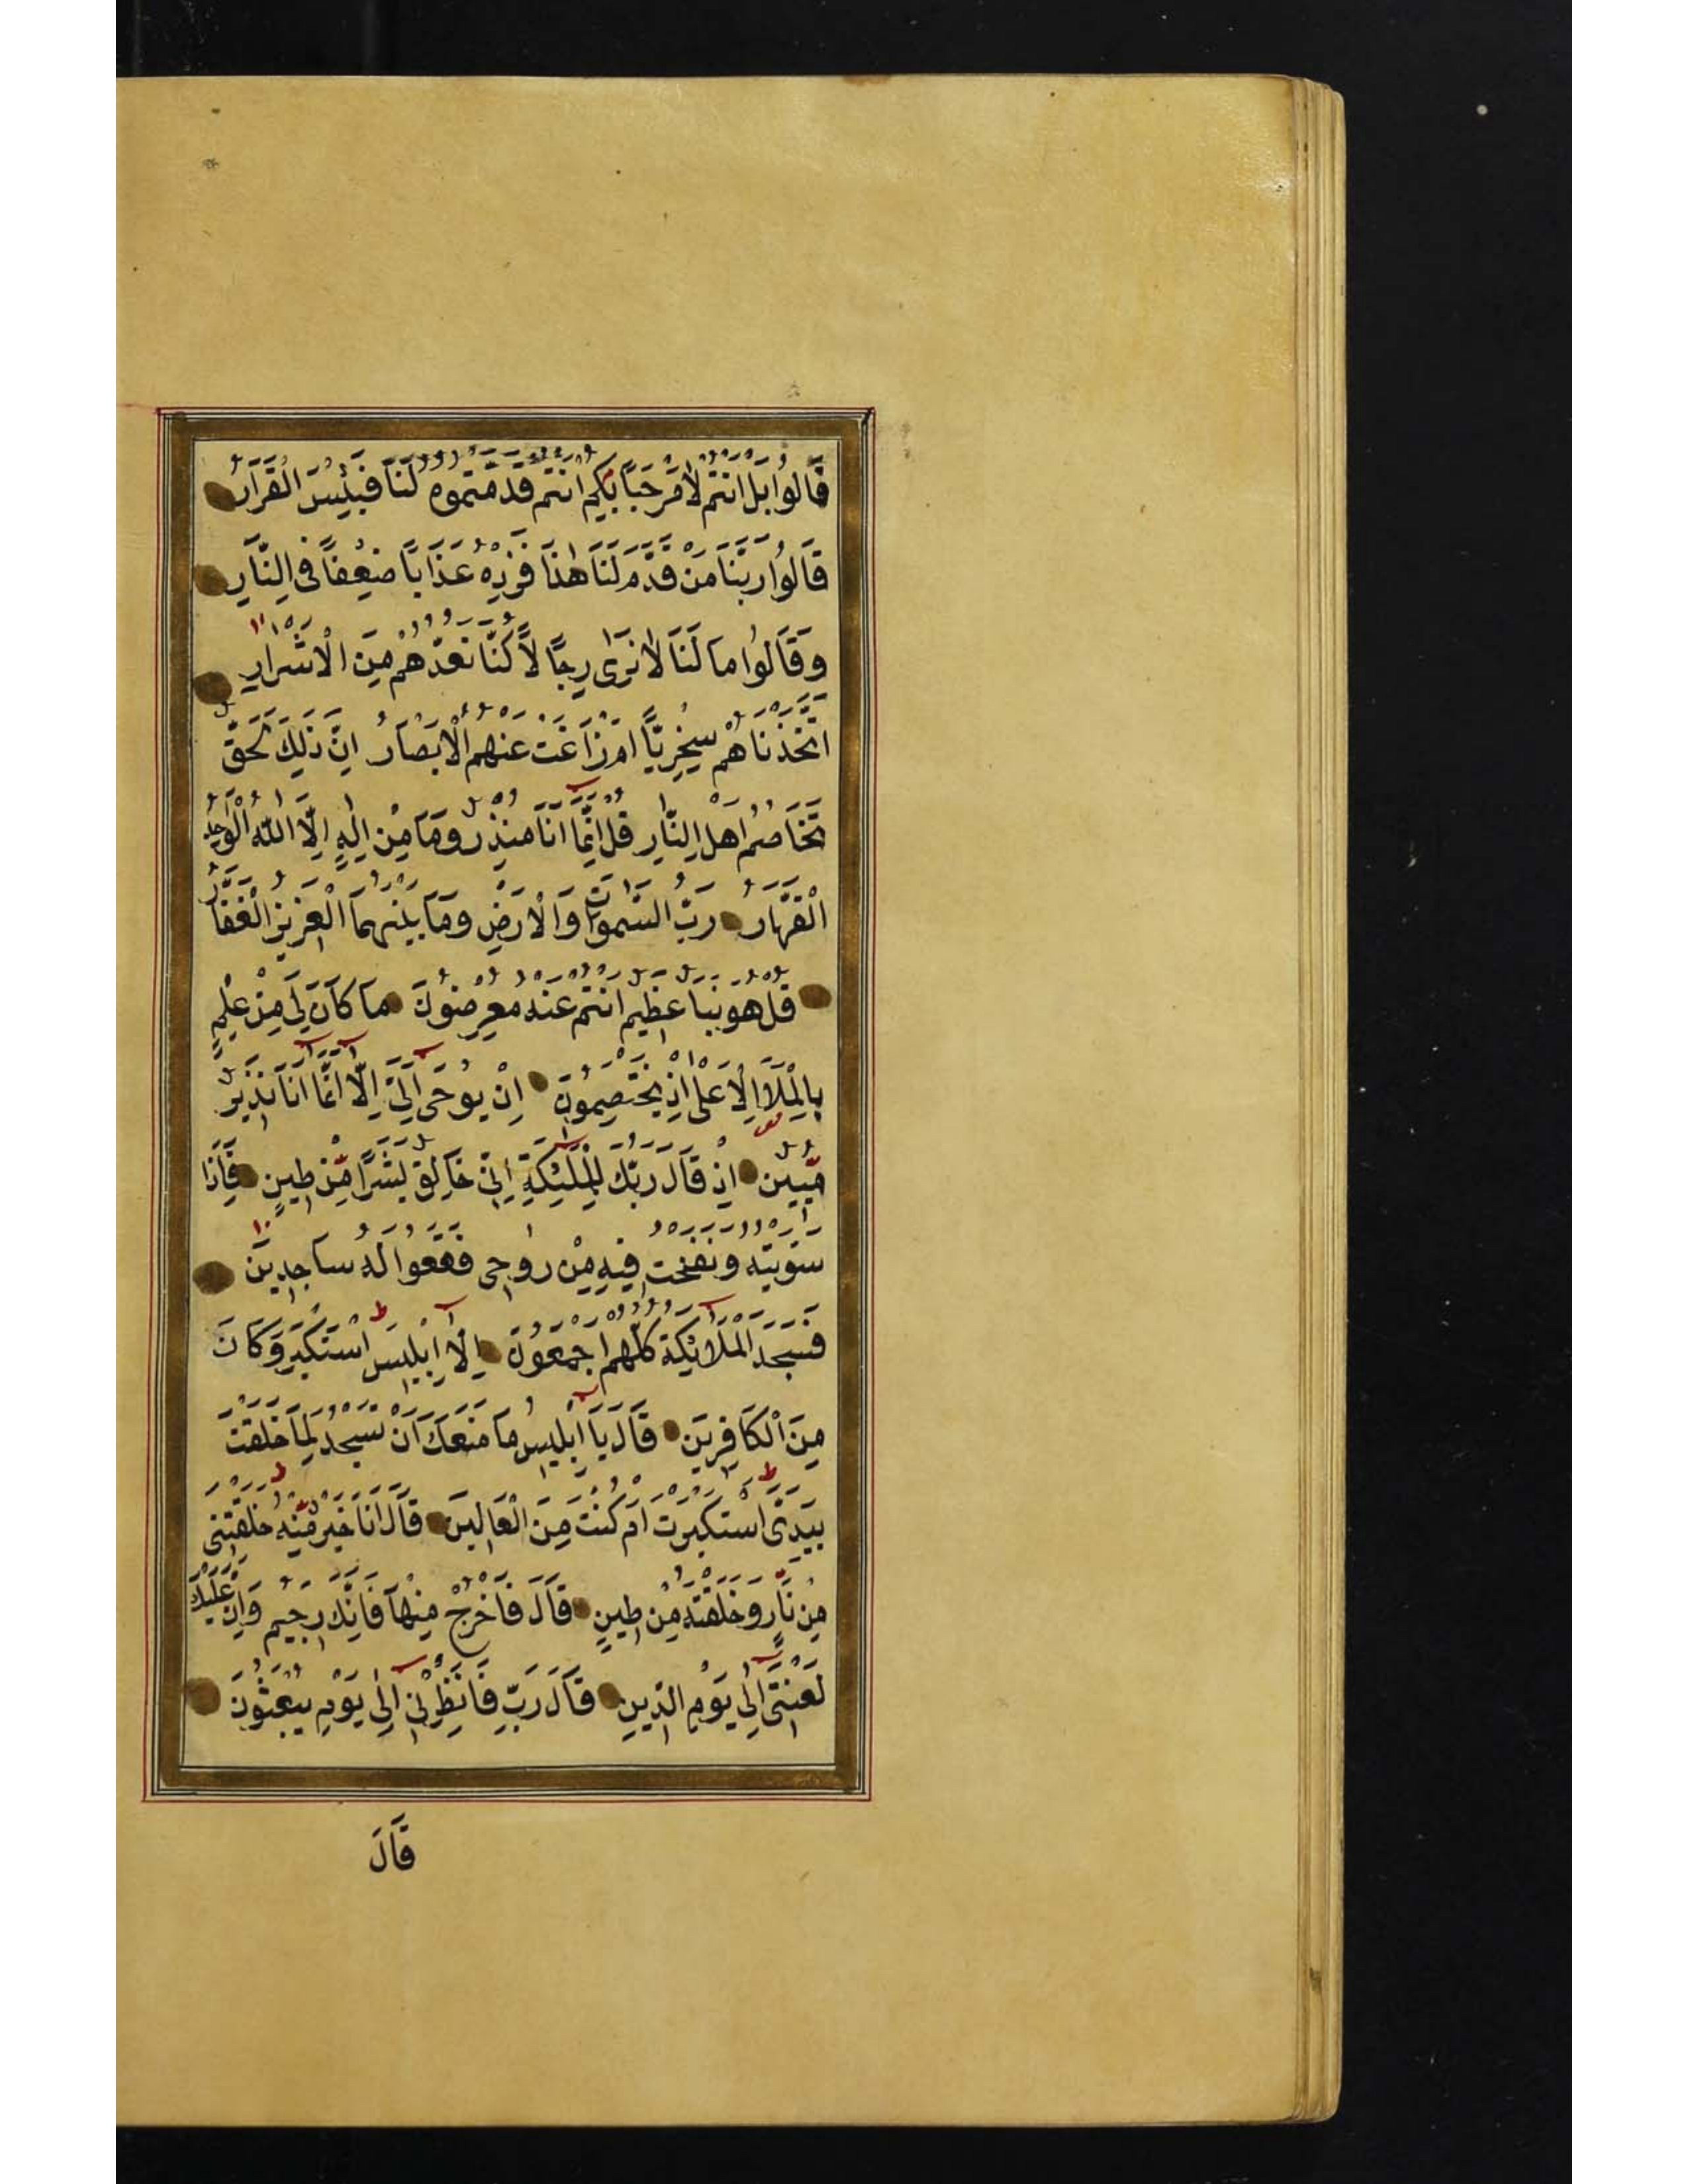 قَالُوا بَلْ اَنْتُمْ لَا مَرْحَبًا بِكُمْ اَنْتُمْ قَدَّمْتُمُوهُ لَنَا فَبِئْسَ الْقَرَارُ
قَالُوا رَبَّنَا مَنْ قَدَّمَ لَنَا هٰذَا فَزِدْهُ عَذَابًا ضِعْفًا فِى النَّارِ
وَقَالُوا مَا لَنَا لَا نَرٰى رِجَالًا كُنَّا نَعُدُّهُمْ مِنَ الْاَشْرَارِ
اَتَّخَذْنَاهُمْ سِخْرِيًّا اَمْ زَاغَتْ عَنْهُمُ الْاَبْصَارُ اِنَّ ذٰلِكَ لَحَقٌّ
تَخَاصُمُ اَهْلِ النَّارِ قُلْ اِنَّمَا اَنَا مُنْذِرٌ وَمَا مِنْ اِلٰهٍ اِلَّا اللّٰهُ الْوَاحِدُ
الْقَهَّارُ رَبُّ السَّمٰوَاتِ وَالْاَرْضِ وَمَا بَيْنَهُمَا الْعَزِيزُ الْغَفَّارُ
قُلْ هُوَ نَبَأٌ عَظِيمٌ اَنْتُمْ عَنْهُ مُعْرِضُونَ مَا كَانَ لِىَ مِنْ عِلْمٍ
بِالْمَلَاِ الْاَعْلٰى اِذْ يَخْتَصِمُونَ اِنْ يُوحٰى اِلَىَّ اِلَّا اَنَّمَا اَنَا نَذِيرٌ
مُّبِينٌ اِذْ قَالَ رَبُّكَ لِلْمَلٰئِكَةِ اِنِّى خَالِقٌ بَشَرًا مِّنْ طِينٍ فَاِذَا
سَوَّيْتُهُ وَنَفَخْتُ فِيهِ مِنْ رُوحِى فَقَعُوا لَهُ سَاجِدِينَ
فَسَجَدَ الْمَلَائِكَةُ كُلُّهُمْ اَجْمَعُونَ اِلَّا اِبْلِيسَ اسْتَكْبَرَ وَكَانَ
مِنَ الْكَافِرِينَ قَالَ يَا اِبْلِيسُ مَا مَنَعَكَ اَنْ تَسْجُدَ لِمَا خَلَقْتُ
بِيَدَىَّ اَسْتَكْبَرْتَ اَمْ كُنْتَ مِنَ الْعَالِينَ قَالَ اَنَا خَيْرٌ مِّنْهُ خَلَقْتَنِى
مِنْ نَارٍ وَخَلَقْتَهُ مِنْ طِينٍ قَالَ فَاخْرُجْ مِنْهَا فَاِنَّكَ رَجِيمٌ وَاِنَّ عَلَيْكَ
لَعْنَتِى اِلٰى يَوْمِ الدِّينِ قَالَ رَبِّ فَاَنْظِرْنِى اِلٰى يَوْمِ يُبْعَثُونَ
قَالَ